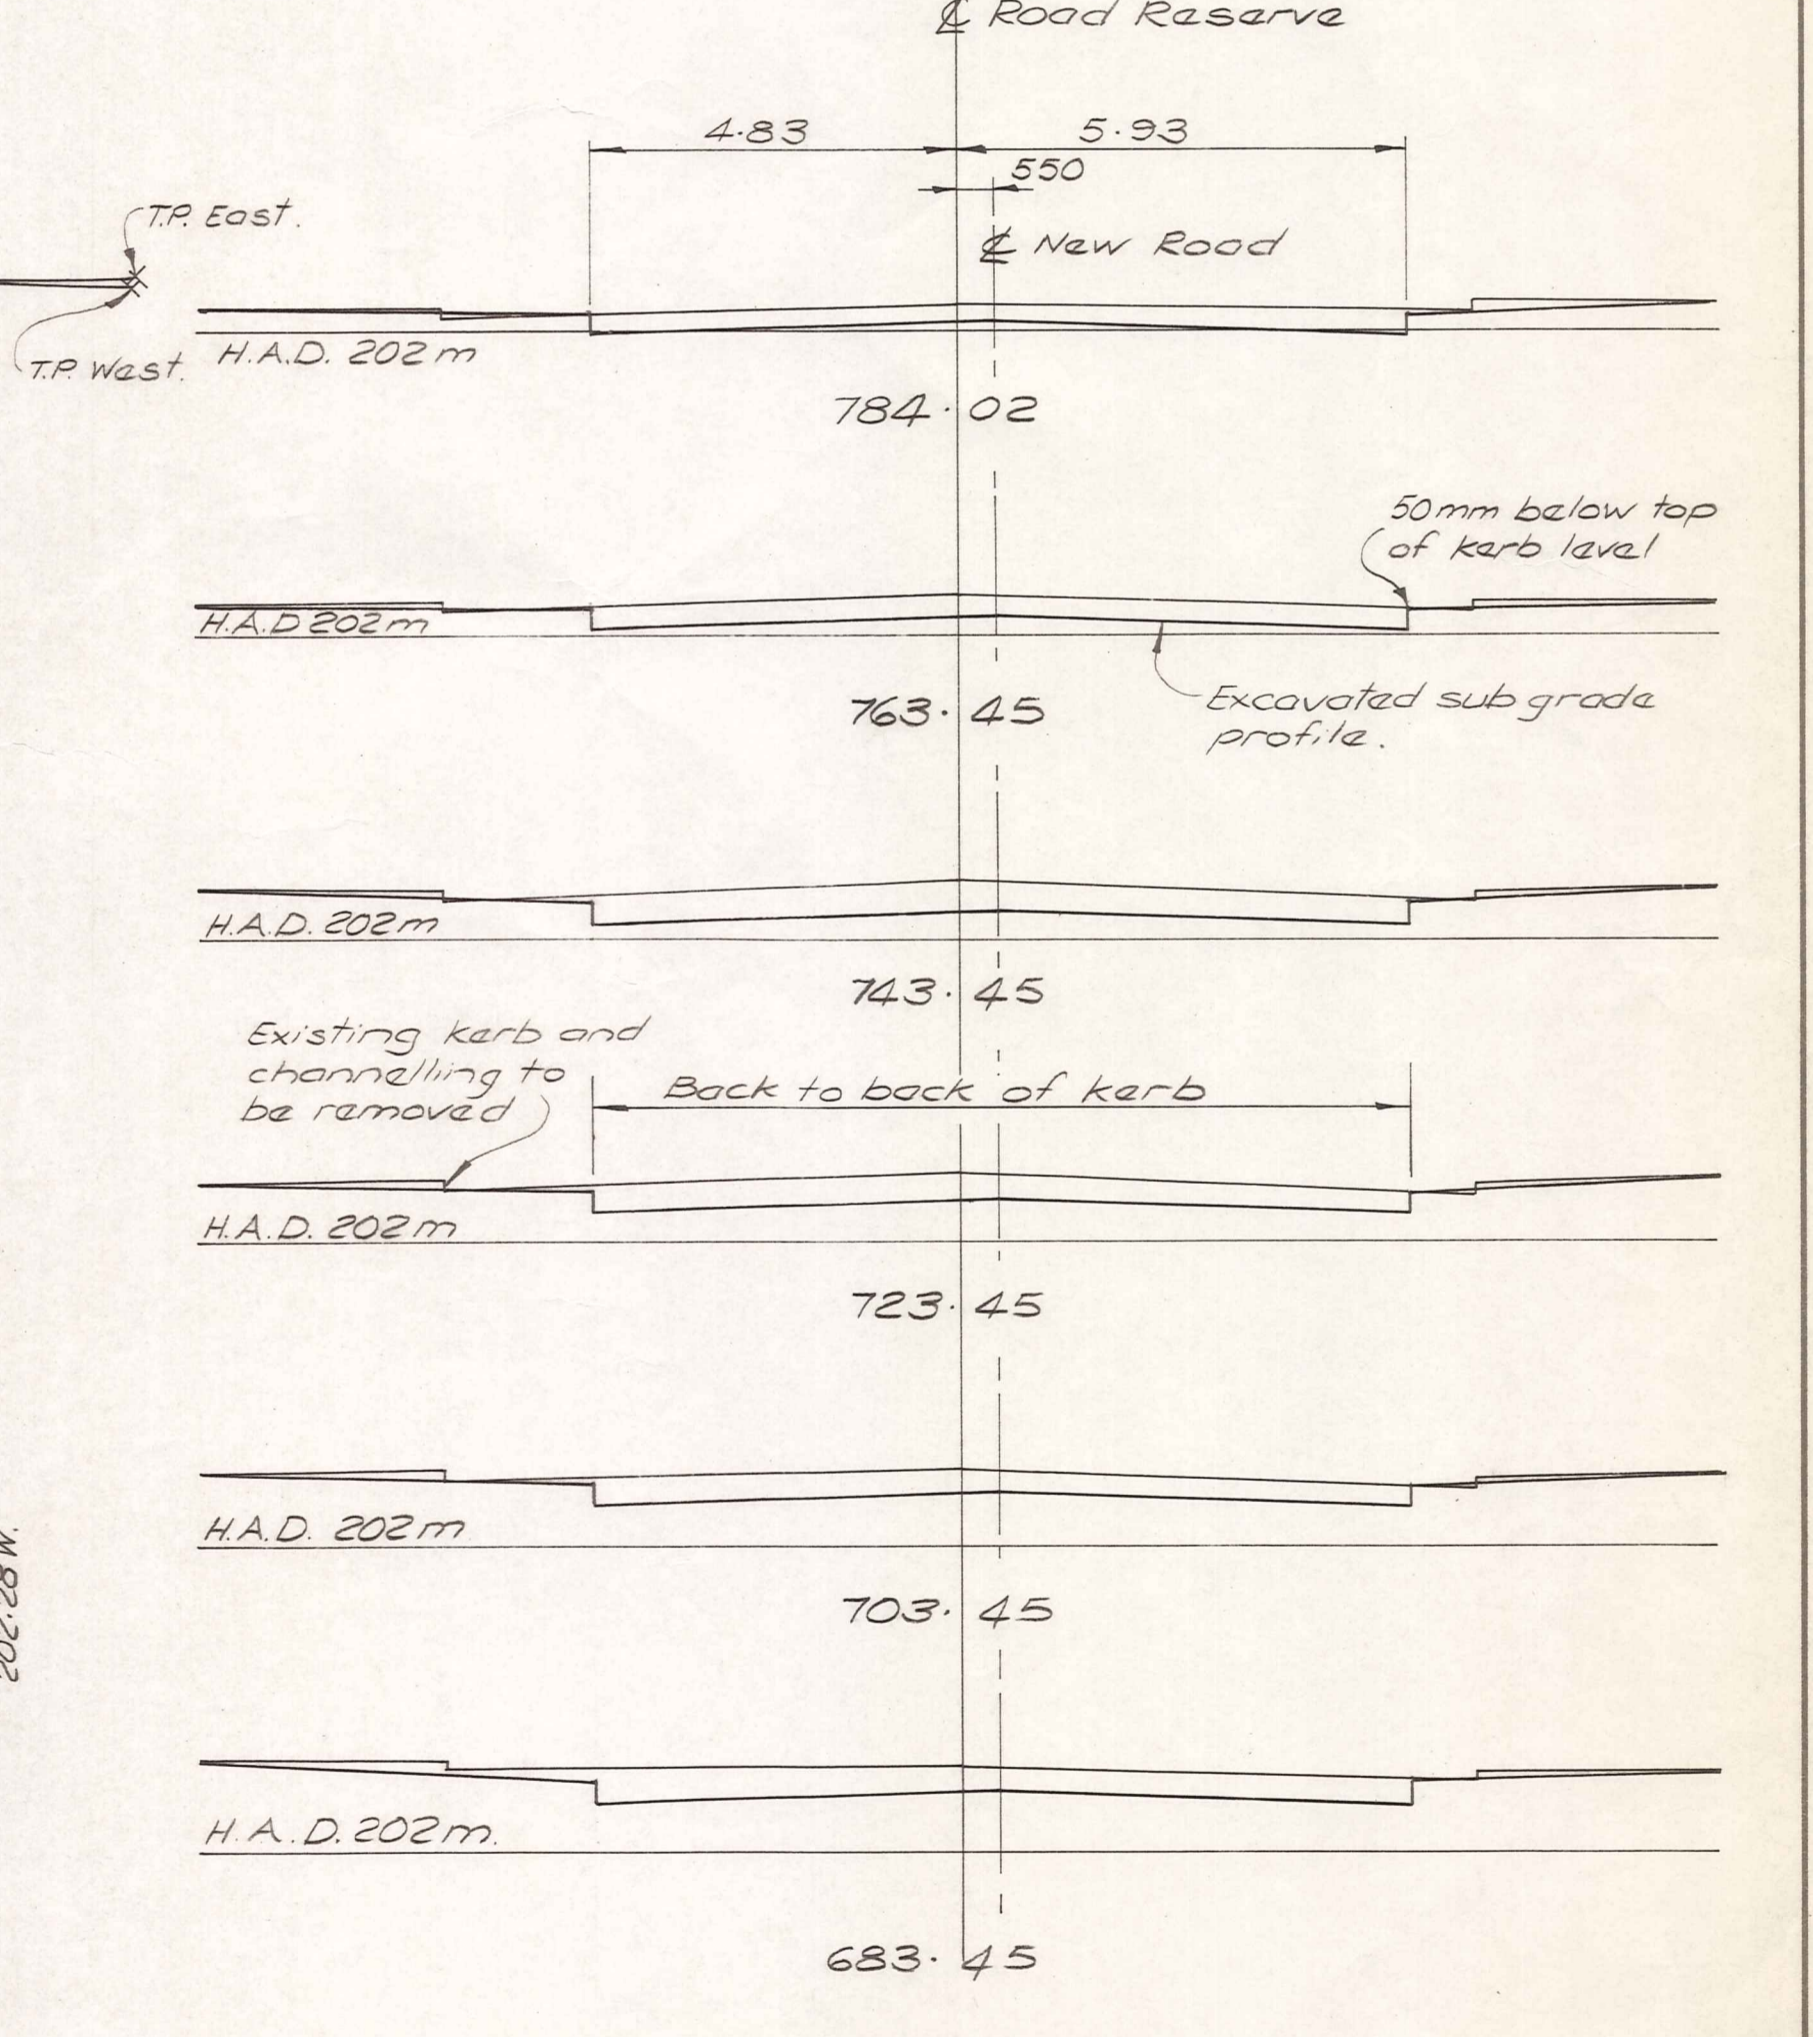 ℄ Road Reserve
4·83 5·93
550
T.P. East.
℄ New Road
T.P. West.
H.A.D. 202m
784·02
50mm below top
of kerb level
H.A.D 202m
Excavated sub grade
profile.
763·45
H.A.D. 202m
743·45
Existing kerb and
channelling to
be removed
Back to back of kerb
H.A.D. 202m
723·45
H.A.D. 202m
703·45
202·28W.
H.A.D. 202m.
683·45